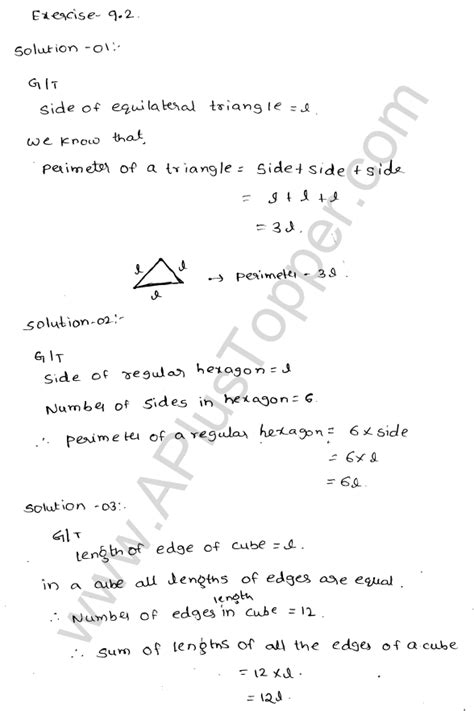 Exercise- 9.2.
Solution -01:-
G/T
Side of equilateral triangle = l.
we know that,
Perimeter of a triangle = Side + side + side
= l + l + l
= 3l.
l l
l
→ perimeter - 3l.
Solution-02:-
G/T
Side of regular hexagon = l
Number of Sides in hexagon = 6.
∴ perimeter of a regular hexagon = 6 × side
= 6 × l
= 6l.
Solution -03:-
G/T
length of edge of cube = l.
in a cube all lengths of edges are equal.
length
∴ Number of edges in cube = 12.
∴ Sum of lengths of all the edges of a cube
= 12 × l.
= 12l.
www.APlusTopper.com